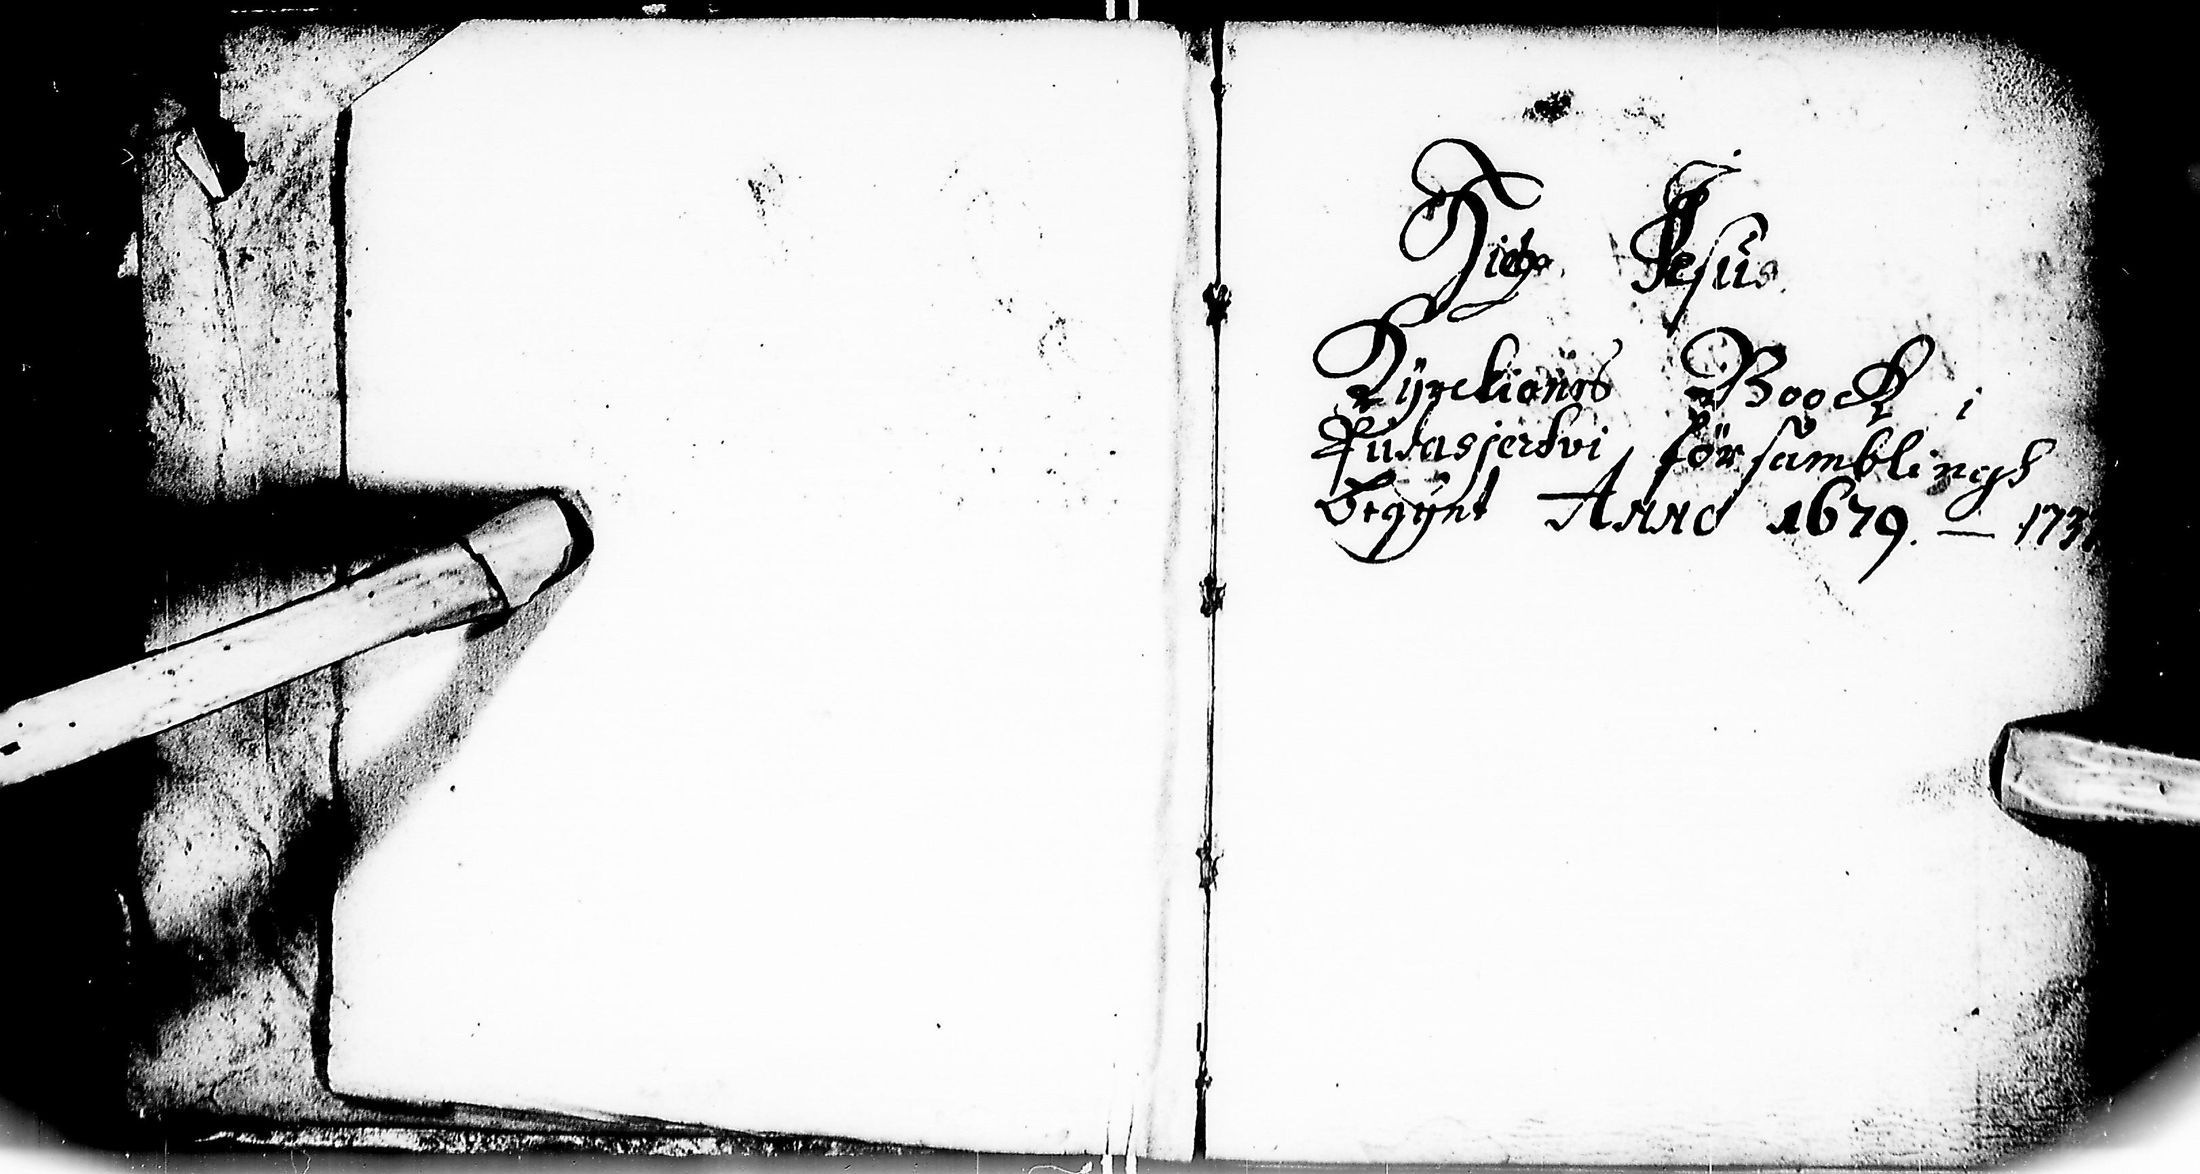 Jesus
Kyrckiones Boock i
Pudasjerfvi församblingh
Begynt Anno 1679. — 173